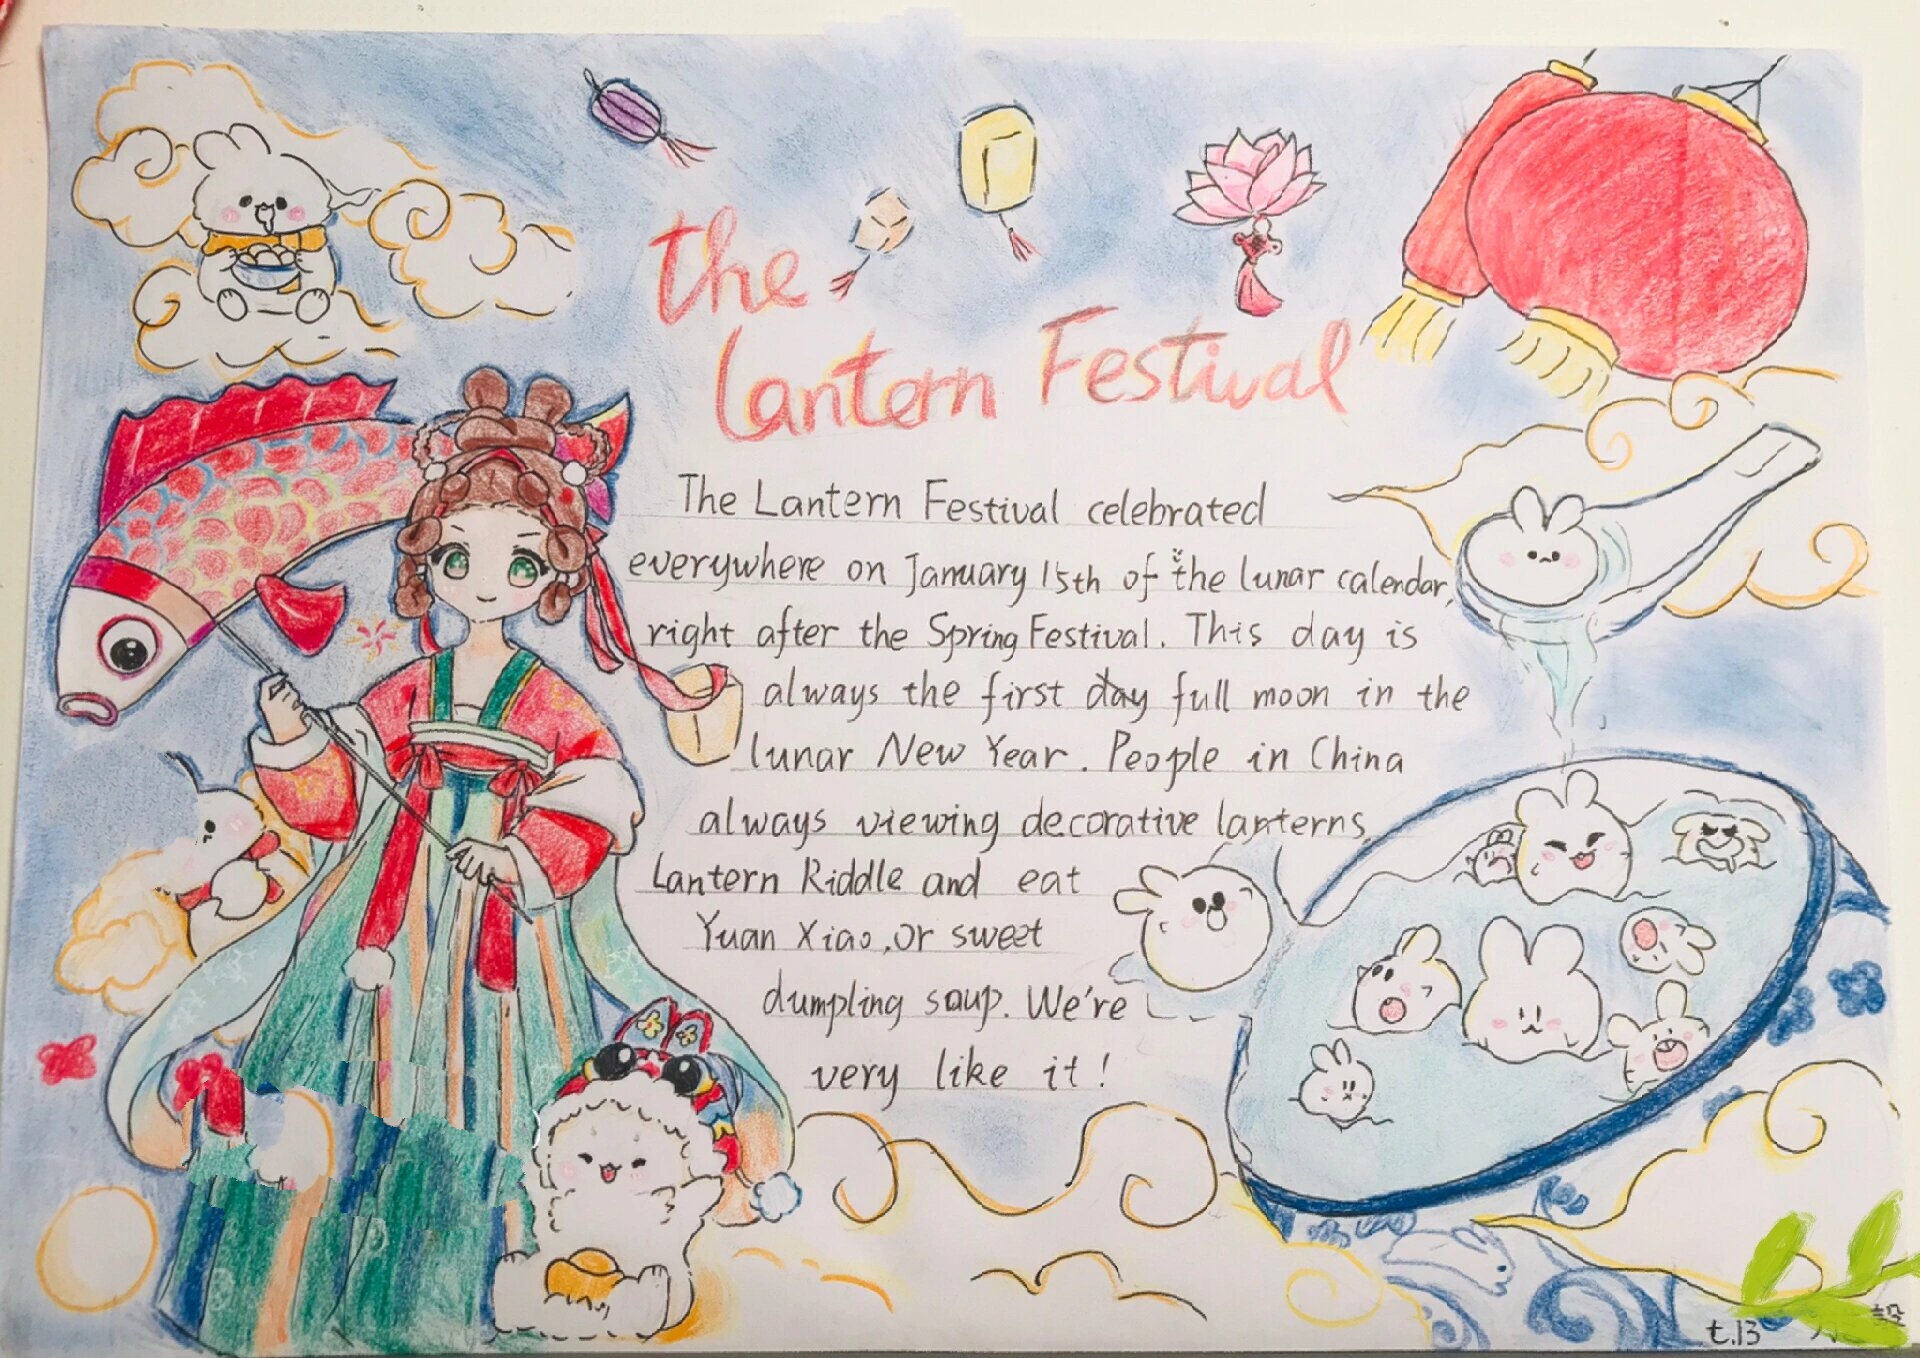 the
Lantern Festival
The Lantern Festival celebrated
everywhere on January 15th of the lunar calendar,
right after the Spring Festival. This day is
always the first day full moon in the
lunar New Year. People in China
always viewing decorative lanterns
Lantern Riddle and eat
Yuan Xiao, or sweet
dumpling soup. We're
very like it!
t.13